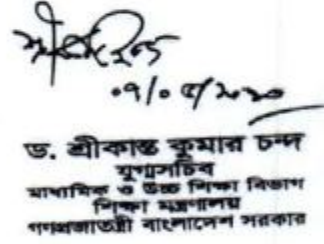 ০৭/০৫/২০২০
ড. শ্রীকান্ত কুমার চন্দ
যুগ্মসচিব
মাধ্যমিক ও উচ্চ শিক্ষা বিভাগ
শিক্ষা মন্ত্রণালয়
গণপ্রজাতন্ত্রী বাংলাদেশ সরকার